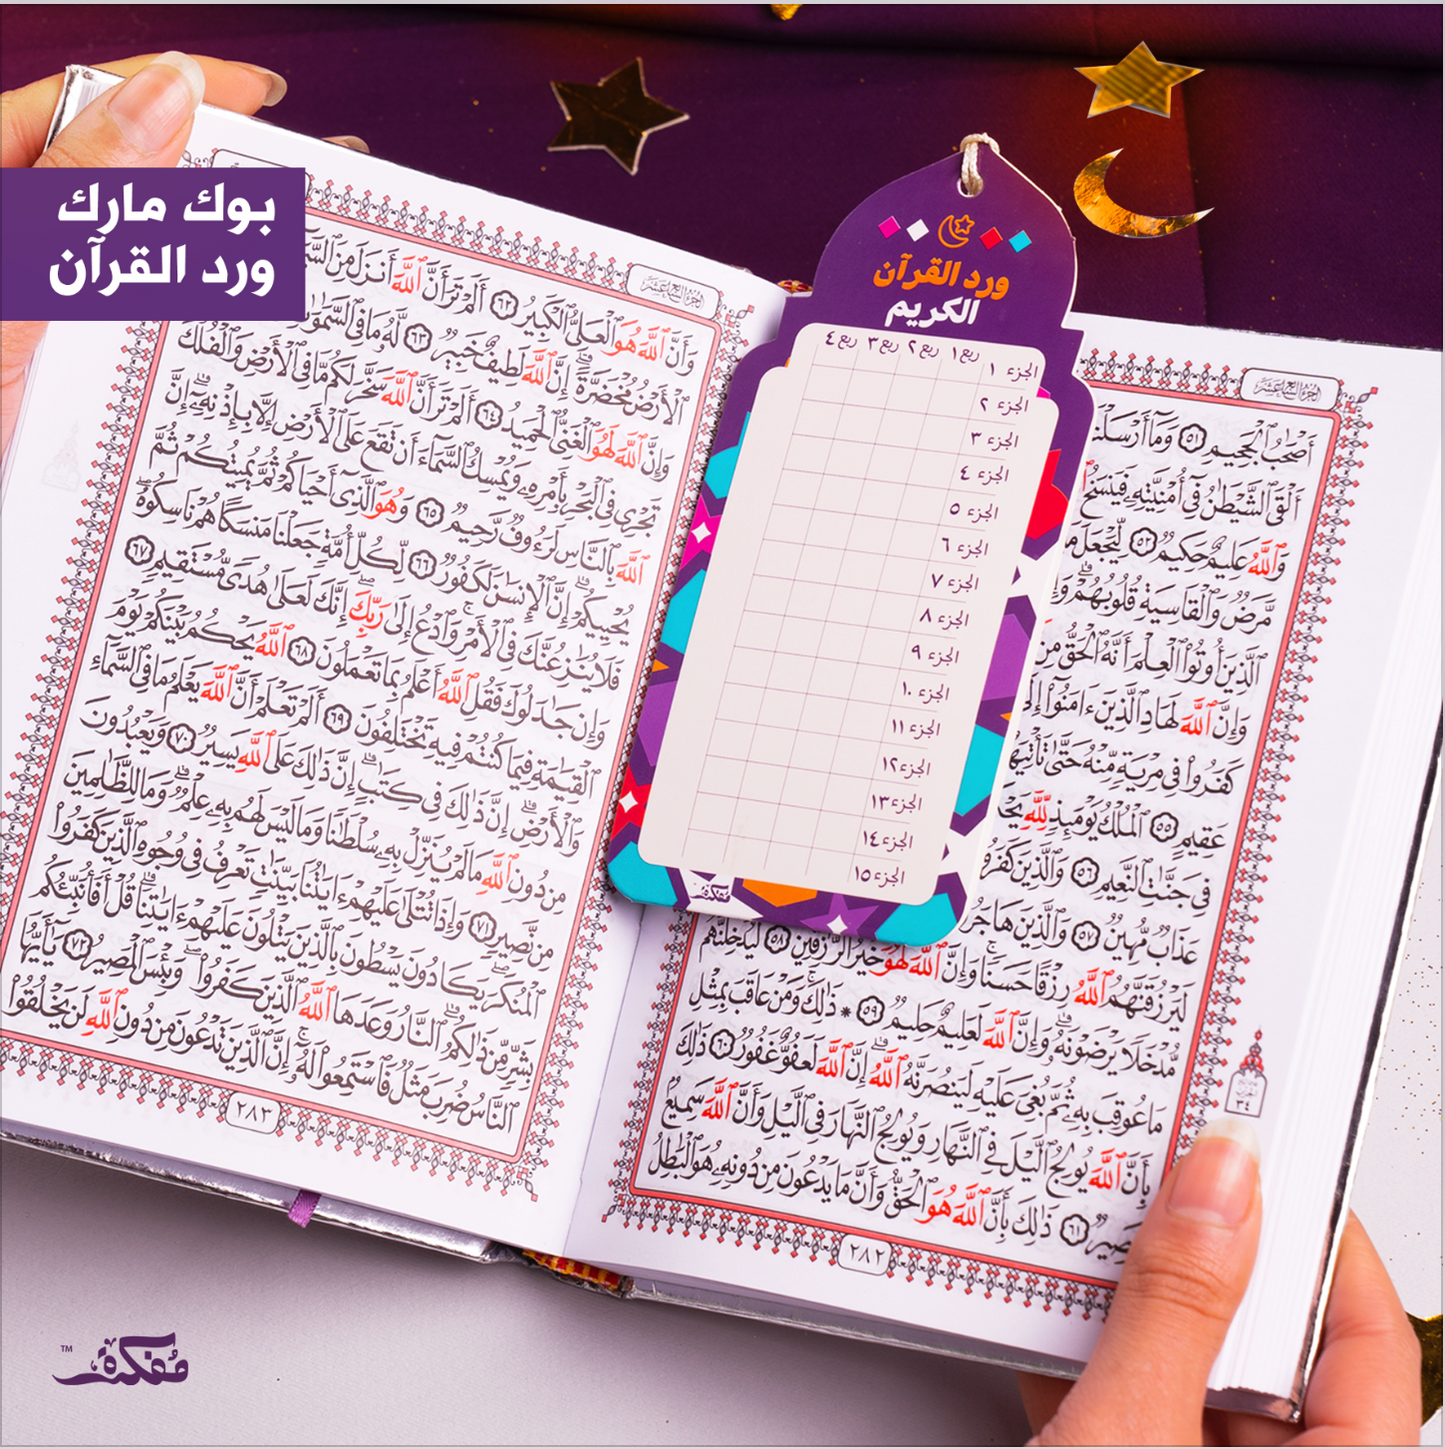 بوك مارك
ورد القرآن
ورد القرآن
الكريم
ربع ١ ربع ٢ ربع ٣ ربع ٤
الجزء ١
الجزء ٢
الجزء ٣
الجزء ٤
الجزء ٥
الجزء ٦
الجزء ٧
الجزء ٨
الجزء ٩
الجزء ١٠
الجزء ١١
الجزء ١٢
الجزء ١٣
الجزء ١٤
الجزء ١٥
مفكرة
الجزء السابع عشر
أَصْحَٰبُ ٱلْجَحِيمِ ٥١ وَمَآ أَرْسَلْنَا
أَلْقَى ٱلشَّيْطَٰنُ فِىٓ أُمْنِيَّتِهِۦ فَيَنسَخُ
وَٱللَّهُ عَلِيمٌ حَكِيمٌ ٥٢ لِّيَجْعَلَ مَا
مَّرَضٌ وَٱلْقَاسِيَةِ قُلُوبُهُمْ
ٱلَّذِينَ أُوتُوا۟ ٱلْعِلْمَ أَنَّهُ ٱلْحَقُّ مِن
وَإِنَّ ٱللَّهَ لَهَادِ ٱلَّذِينَ ءَامَنُوٓا۟
كَفَرُوا۟ فِى مِرْيَةٍ مِّنْهُ حَتَّىٰ تَأْتِيَهُ
عَقِيمٍ ٥٥ ٱلْمُلْكُ يَوْمَئِذٍ لِّلَّهِ
فِى جَنَّٰتِ ٱلنَّعِيمِ ٥٦ وَٱلَّذِينَ
عَذَابٌ مُّهِينٌ ٥٧ وَٱلَّذِينَ
لَيَرْزُقَنَّهُمُ ٱللَّهُ رِزْقًا حَسَنًا وَإِنَّ ٱللَّهَ لَهُوَ خَيْرُ ٱلرَّٰزِقِينَ ٥٨ لَيُدْخِلَنَّهُم
مُّدْخَلًا يَرْضَوْنَهُۥ وَإِنَّ ٱللَّهَ لَعَلِيمٌ حَلِيمٌ ٥٩ * ذَٰلِكَ وَمَنْ عَاقَبَ بِمِثْلِ
مَا عُوقِبَ بِهِۦ ثُمَّ بُغِىَ عَلَيْهِ لَيَنصُرَنَّهُ ٱللَّهُ إِنَّ ٱللَّهَ لَعَفُوٌّ غَفُورٌ ٦٠ ذَٰلِكَ
بِأَنَّ ٱللَّهَ يُولِجُ ٱلَّيْلَ فِى ٱلنَّهَارِ وَيُولِجُ ٱلنَّهَارَ فِى ٱلَّيْلِ وَأَنَّ ٱللَّهَ سَمِيعٌۢ
بَصِيرٌ ٦١ ذَٰلِكَ بِأَنَّ ٱللَّهَ هُوَ ٱلْحَقُّ وَأَنَّ مَا يَدْعُونَ مِن دُونِهِۦ هُوَ ٱلْبَٰطِلُ
٣٤
٢٨٢
الجزء السابع عشر
وَأَنَّ ٱللَّهَ هُوَ ٱلْعَلِىُّ ٱلْكَبِيرُ ٦٢ أَلَمْ تَرَ أَنَّ ٱللَّهَ أَنزَلَ مِنَ
ٱلْأَرْضُ مُخْضَرَّةً إِنَّ ٱللَّهَ لَطِيفٌ خَبِيرٌ ٦٣ لَّهُۥ مَا فِى ٱلسَّمَٰوَٰتِ
وَإِنَّ ٱللَّهَ لَهُوَ ٱلْغَنِىُّ ٱلْحَمِيدُ ٦٤ أَلَمْ تَرَ أَنَّ ٱللَّهَ سَخَّرَ لَكُم مَّا فِى ٱلْأَرْضِ وَٱلْفُلْكَ
تَجْرِى فِى ٱلْبَحْرِ بِأَمْرِهِۦ وَيُمْسِكُ ٱلسَّمَآءَ أَن تَقَعَ عَلَى ٱلْأَرْضِ إِلَّا بِإِذْنِهِۦٓ إِنَّ
ٱللَّهَ بِٱلنَّاسِ لَرَءُوفٌ رَّحِيمٌ ٦٥ وَهُوَ ٱلَّذِىٓ أَحْيَاكُمْ ثُمَّ يُمِيتُكُمْ ثُمَّ
يُحْيِيكُمْ إِنَّ ٱلْإِنسَٰنَ لَكَفُورٌ ٦٦ لِّكُلِّ أُمَّةٍ جَعَلْنَا مَنسَكًا هُمْ نَاسِكُوهُ
فَلَا يُنَٰزِعُنَّكَ فِى ٱلْأَمْرِ وَٱدْعُ إِلَىٰ رَبِّكَ إِنَّكَ لَعَلَىٰ هُدًى مُّسْتَقِيمٍ ٦٧
وَإِن جَٰدَلُوكَ فَقُلِ ٱللَّهُ أَعْلَمُ بِمَا تَعْمَلُونَ ٦٨ ٱللَّهُ يَحْكُمُ بَيْنَكُمْ يَوْمَ
ٱلْقِيَٰمَةِ فِيمَا كُنتُمْ فِيهِ تَخْتَلِفُونَ ٦٩ أَلَمْ تَعْلَمْ أَنَّ ٱللَّهَ يَعْلَمُ مَا فِى ٱلسَّمَآءِ
وَٱلْأَرْضِ إِنَّ ذَٰلِكَ فِى كِتَٰبٍ إِنَّ ذَٰلِكَ عَلَى ٱللَّهِ يَسِيرٌ ٧٠ وَيَعْبُدُونَ
مِن دُونِ ٱللَّهِ مَا لَمْ يُنَزِّلْ بِهِۦ سُلْطَٰنًا وَمَا لَيْسَ لَهُم بِهِۦ عِلْمٌ وَمَا لِلظَّٰلِمِينَ
مِن نَّصِيرٍ ٧١ وَإِذَا تُتْلَىٰ عَلَيْهِمْ ءَايَٰتُنَا بَيِّنَٰتٍ تَعْرِفُ فِى وُجُوهِ ٱلَّذِينَ كَفَرُوا۟
ٱلْمُنكَرَ يَكَادُونَ يَسْطُونَ بِٱلَّذِينَ يَتْلُونَ عَلَيْهِمْ ءَايَٰتِنَا قُلْ أَفَأُنَبِّئُكُم
بِشَرٍّ مِّن ذَٰلِكُمُ ٱلنَّارُ وَعَدَهَا ٱللَّهُ ٱلَّذِينَ كَفَرُوا۟ وَبِئْسَ ٱلْمَصِيرُ ٧٢ يَٰٓأَيُّهَا
ٱلنَّاسُ ضُرِبَ مَثَلٌ فَٱسْتَمِعُوا۟ لَهُۥٓ إِنَّ ٱلَّذِينَ تَدْعُونَ مِن دُونِ ٱللَّهِ لَن يَخْلُقُوا۟
٢٨٣
مفكرة™